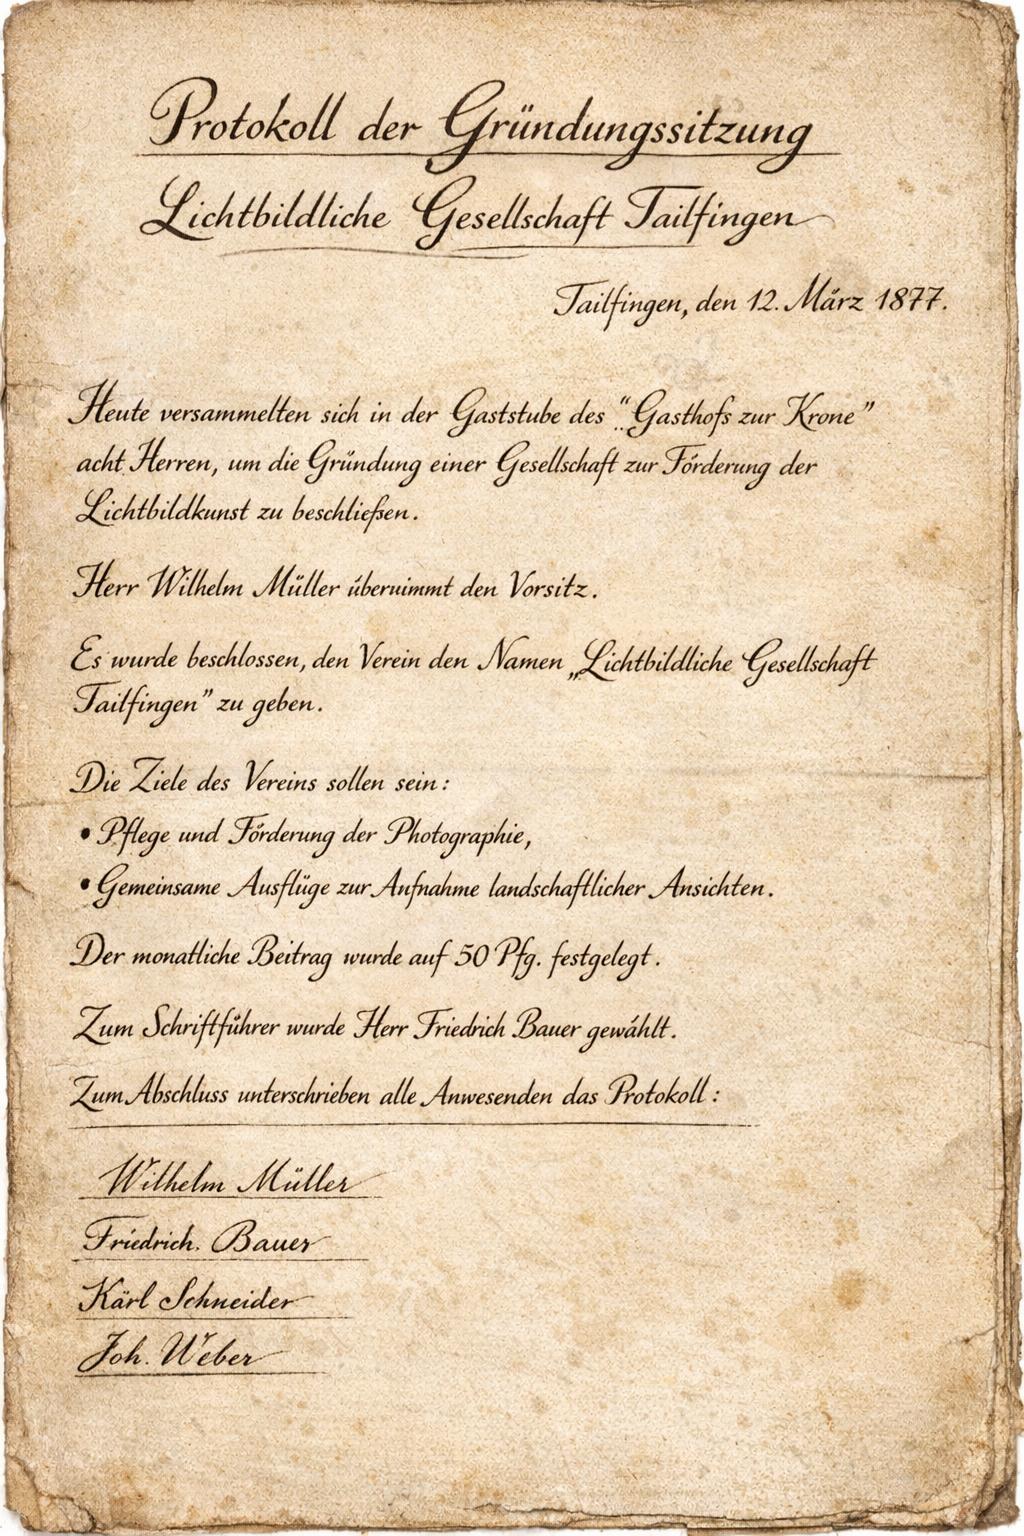 Protokoll der Gründungssitzung
Lichtbildliche Gesellschaft Tailfingen
Tailfingen, den 12. März 1877.
Heute versammelten sich in der Gaststube des “Gasthofs zur Krone”
acht Herren, um die Gründung einer Gesellschaft zur Förderung der
Lichtbildkunst zu beschließen.
Herr Wilhelm Müller übernimmt den Vorsitz.
Es wurde beschlossen, den Verein den Namen „Lichtbildliche Gesellschaft
Tailfingen” zu geben.
Die Ziele des Vereins sollen sein:
• Pflege und Förderung der Photographie,
• Gemeinsame Ausflüge zur Aufnahme landschaftlicher Ansichten.
Der monatliche Beitrag wurde auf 50 Pfg. festgelegt.
Zum Schriftführer wurde Herr Friedrich Bauer gewählt.
Zum Abschluss unterschrieben alle Anwesenden das Protokoll:
Wilhelm Müller
Friedrich. Bauer
Kärl Schneider
Joh. Weber